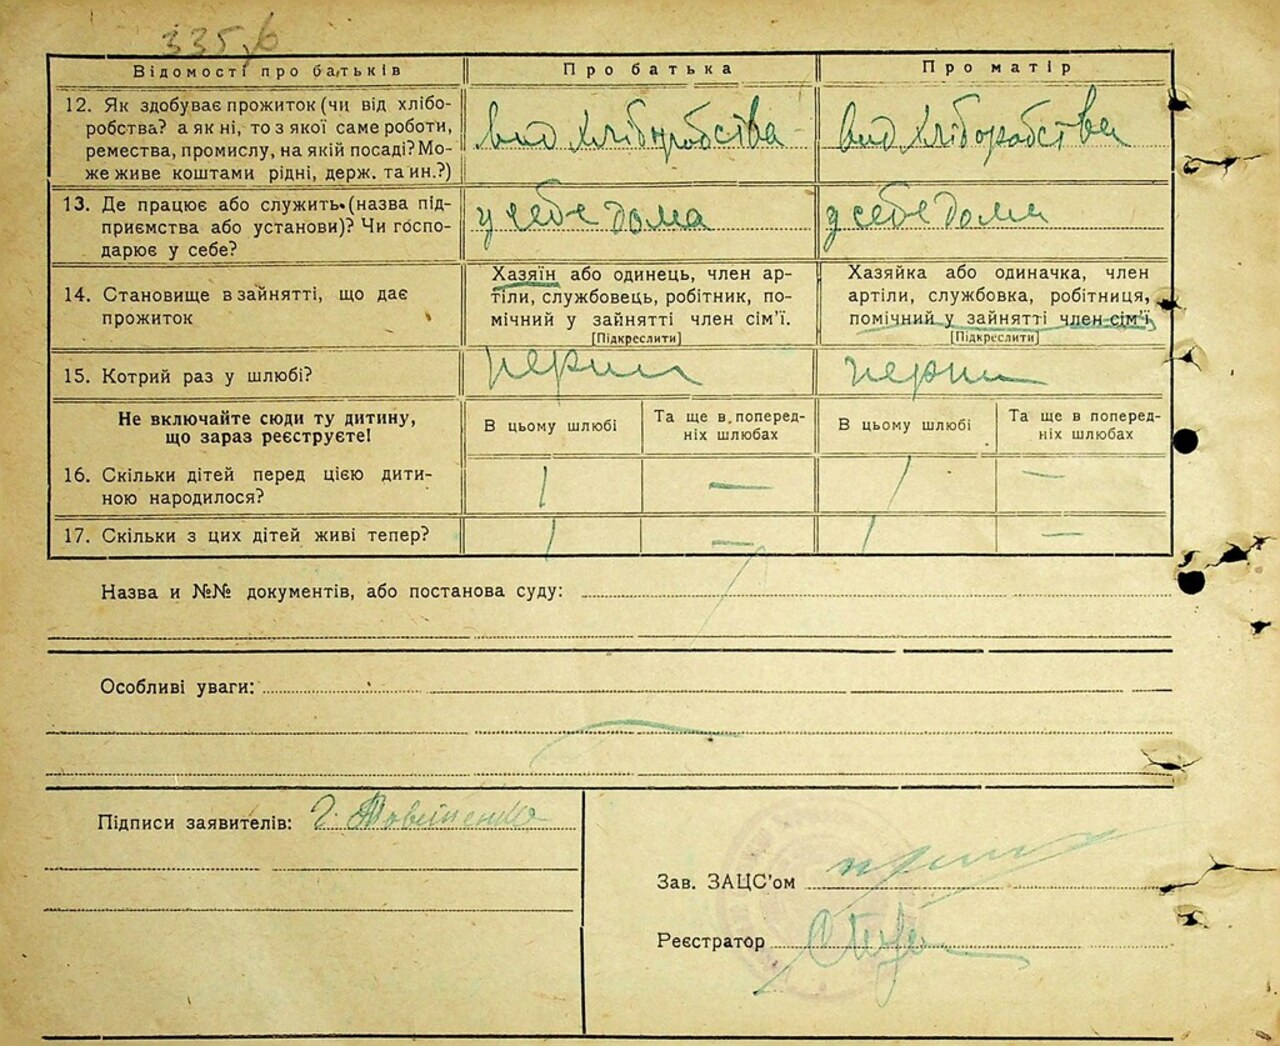 335
Відомості про батьків
Про батька
Про матір
12. Як здобуває прожиток (чи від хлібо-
робства? а як ні, то з якої саме роботи,
ремества, промислу, на якій посаді? Мо-
же живе коштами рідні, держ. та ин.?)
вид хліборобства
вид хліборобства
13. Де працює або служить (назва під-
приємства або установи)? Чи госпо-
дарює у себе?
у себе дома
у себе дома
14. Становище в зайнятті, що дає
прожиток
Хазяїн або одинець, член ар-
тіли, службовець, робітник, по-
мічний у зайнятті член сім’ї.
[Підкреслити]
Хазяйка або одиначка, член
артіли, службовка, робітниця,
помічний у зайнятті член сім’ї
[Підкреслити]
15. Котрий раз у шлюбі?
перши
перши
Не включайте сюди ту дитину,
що зараз реєструєте!
В цьому шлюбі
Та ще в поперед-
ніх шлюбах
В цьому шлюбі
Та ще в поперед-
ніх шлюбах
16. Скільки дітей перед цією дити-
ною народилося?
1 — 1 —
17. Скільки з цих дітей живі тепер?
1 — 1 —
Назва и №№ документів, або постанова суду:
Особливі уваги:
Підписи заявителів: Г.
Зав. ЗАЦС’ом
Реєстратор